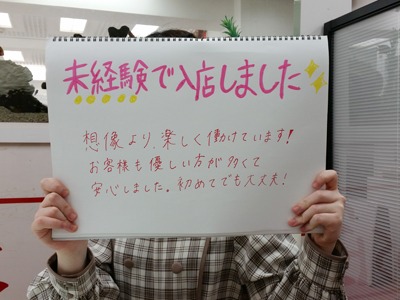 未経験で入店しました
想像より、楽しく働けています!
お客様も優しい方が多くて
安心しました。初めてでも大丈夫!